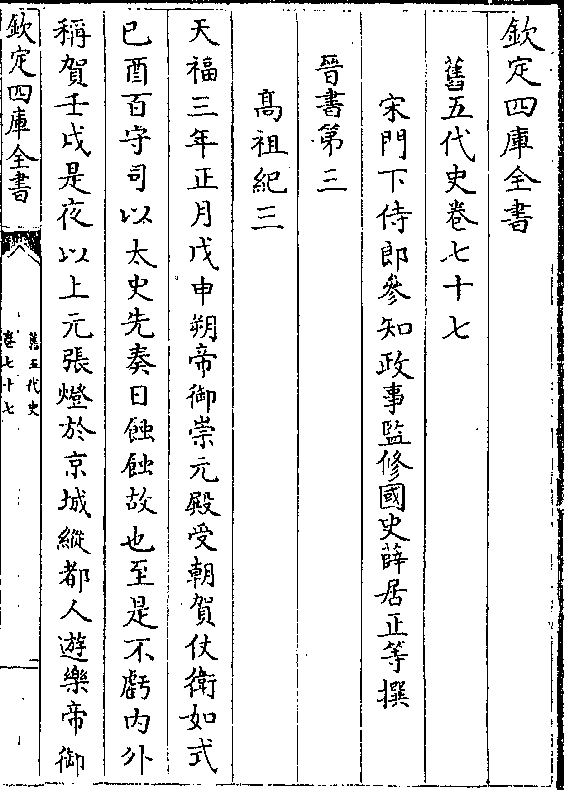 欽定四庫全書
舊五代史卷七十七
宋門下侍郎參知政事監修國史薛居正等撰
晉書第三
髙祖紀三
天福三年正月戊申朔帝御崇元殿受朝賀仗衛如式
已酉百守司以太史先奏日蝕蝕故也至是不虧内外
稱賀壬戌是夜以上元張燈於京城縱都人遊樂帝御
欽定四庫全書
舊五代史
卷七十七
一